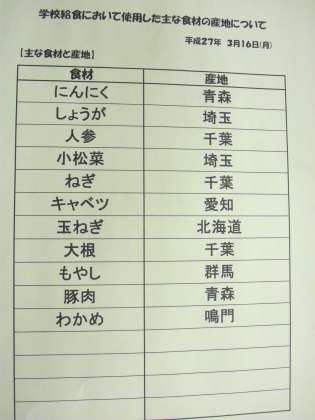 学校給食において使用した主な食材の産地について
平成27年 3月16日(月)
【主な食材と産地】
食材 産地
にんにく 青森
しょうが 埼玉
人参 千葉
小松菜 埼玉
ねぎ 千葉
キャベツ 愛知
玉ねぎ 北海道
大根 千葉
もやし 群馬
豚肉 青森
わかめ 鳴門